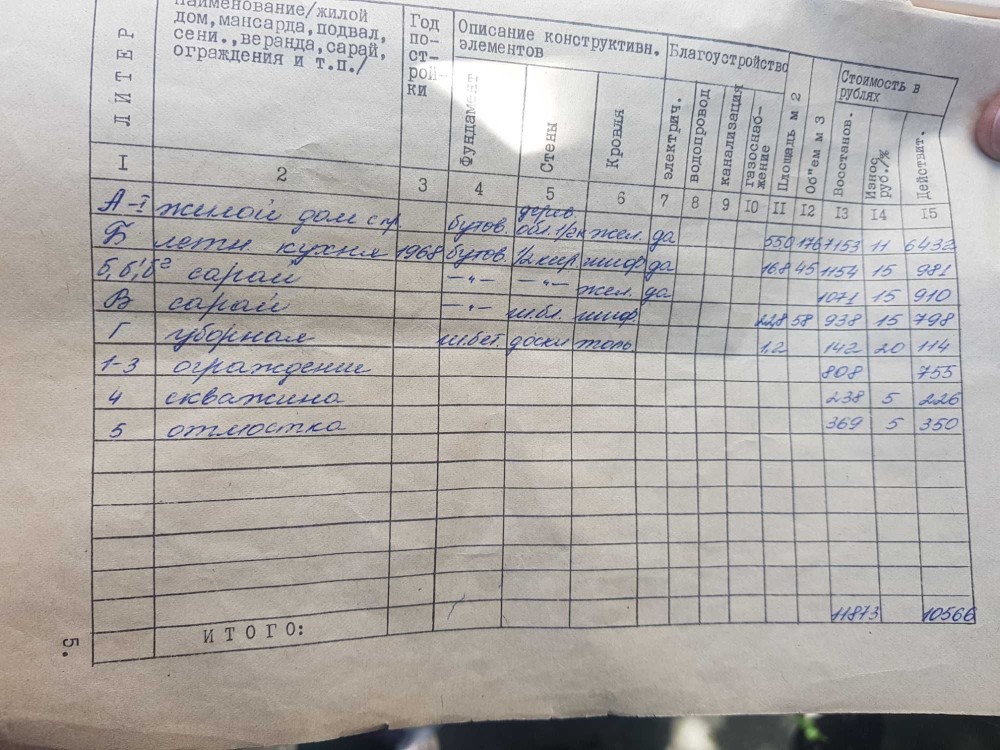 Л И Т Е Р
наименование/жилой
дом, мансарда, подвал,
сени., веранда, сарай,
ограждения и т.п./
Год
по-
ст-
рой-
ки
Описание конструктивн.
элементов
Фундамент
Стены
Кровля
Благоустройство
электрич.
водопровод
канализация
газоснаб-
жение
Площадь м 2
Об"ем м 3
Стоимость в
рублях
Восстанов.
Износ
руб./%
Действит.
I 2 3 4 5 6 7 8 9 10 11 12 13 14 15
А-I жилой дом с пр. бутов. дерев. обл. 1/2к жел. да 550 176 7153 11 6432
Б летн. кухня 1968 бутов. 1/2 кир. шиф да 16.8 45 1154 15 981
б, б', б² сарай —"— —"— жел. да 1071 15 910
В сарай —"— ш.бл. шиф. 22.8 58 938 15 798
Г уборная ш.бет. доски толь 1,2 142 20 114
1-3 ограждение 808 755
4 скважина 238 5 226
5 отмостка 369 5 350
И Т О Г О: 11873 10566
5.